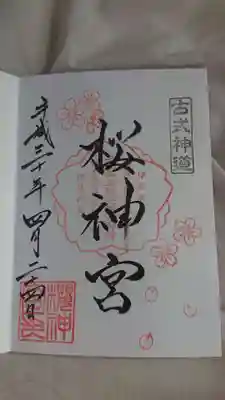 古式神道
桜神宮
平成三十年四月二十四日